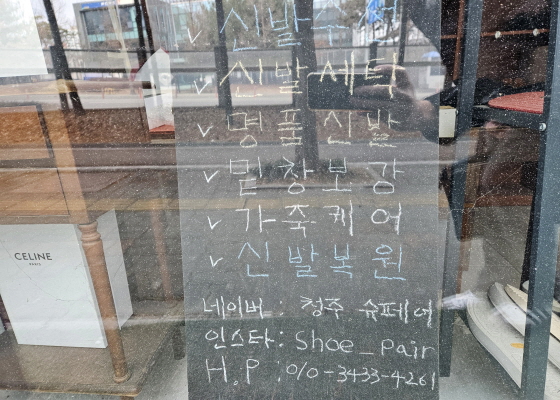 ✓ 신발수선
✓ 신발세탁
✓ 명품신발
✓ 밑창보강
✓ 가죽케어
✓ 신발복원
네이버: 청주 슈페어
인스타: Shoe_Pair
H.P : 010-3433-4261
CELINE
PARIS